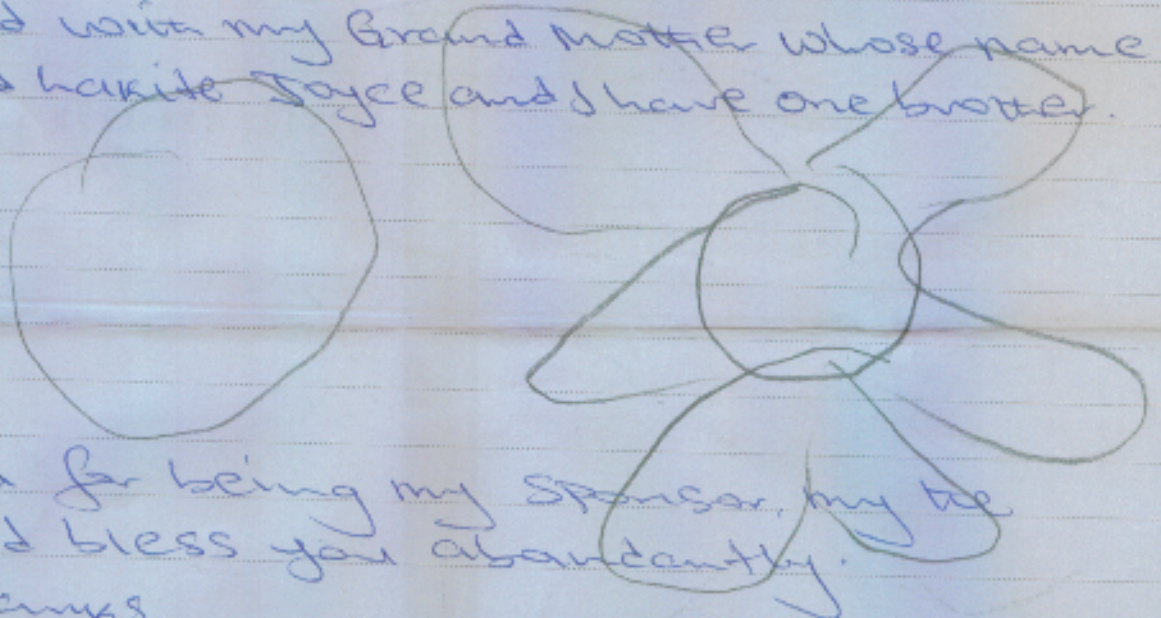 d with my Grand Mother whose name
hakite Joyce and I have one brother.
for being my sponsor, my
d bless you abundantly.